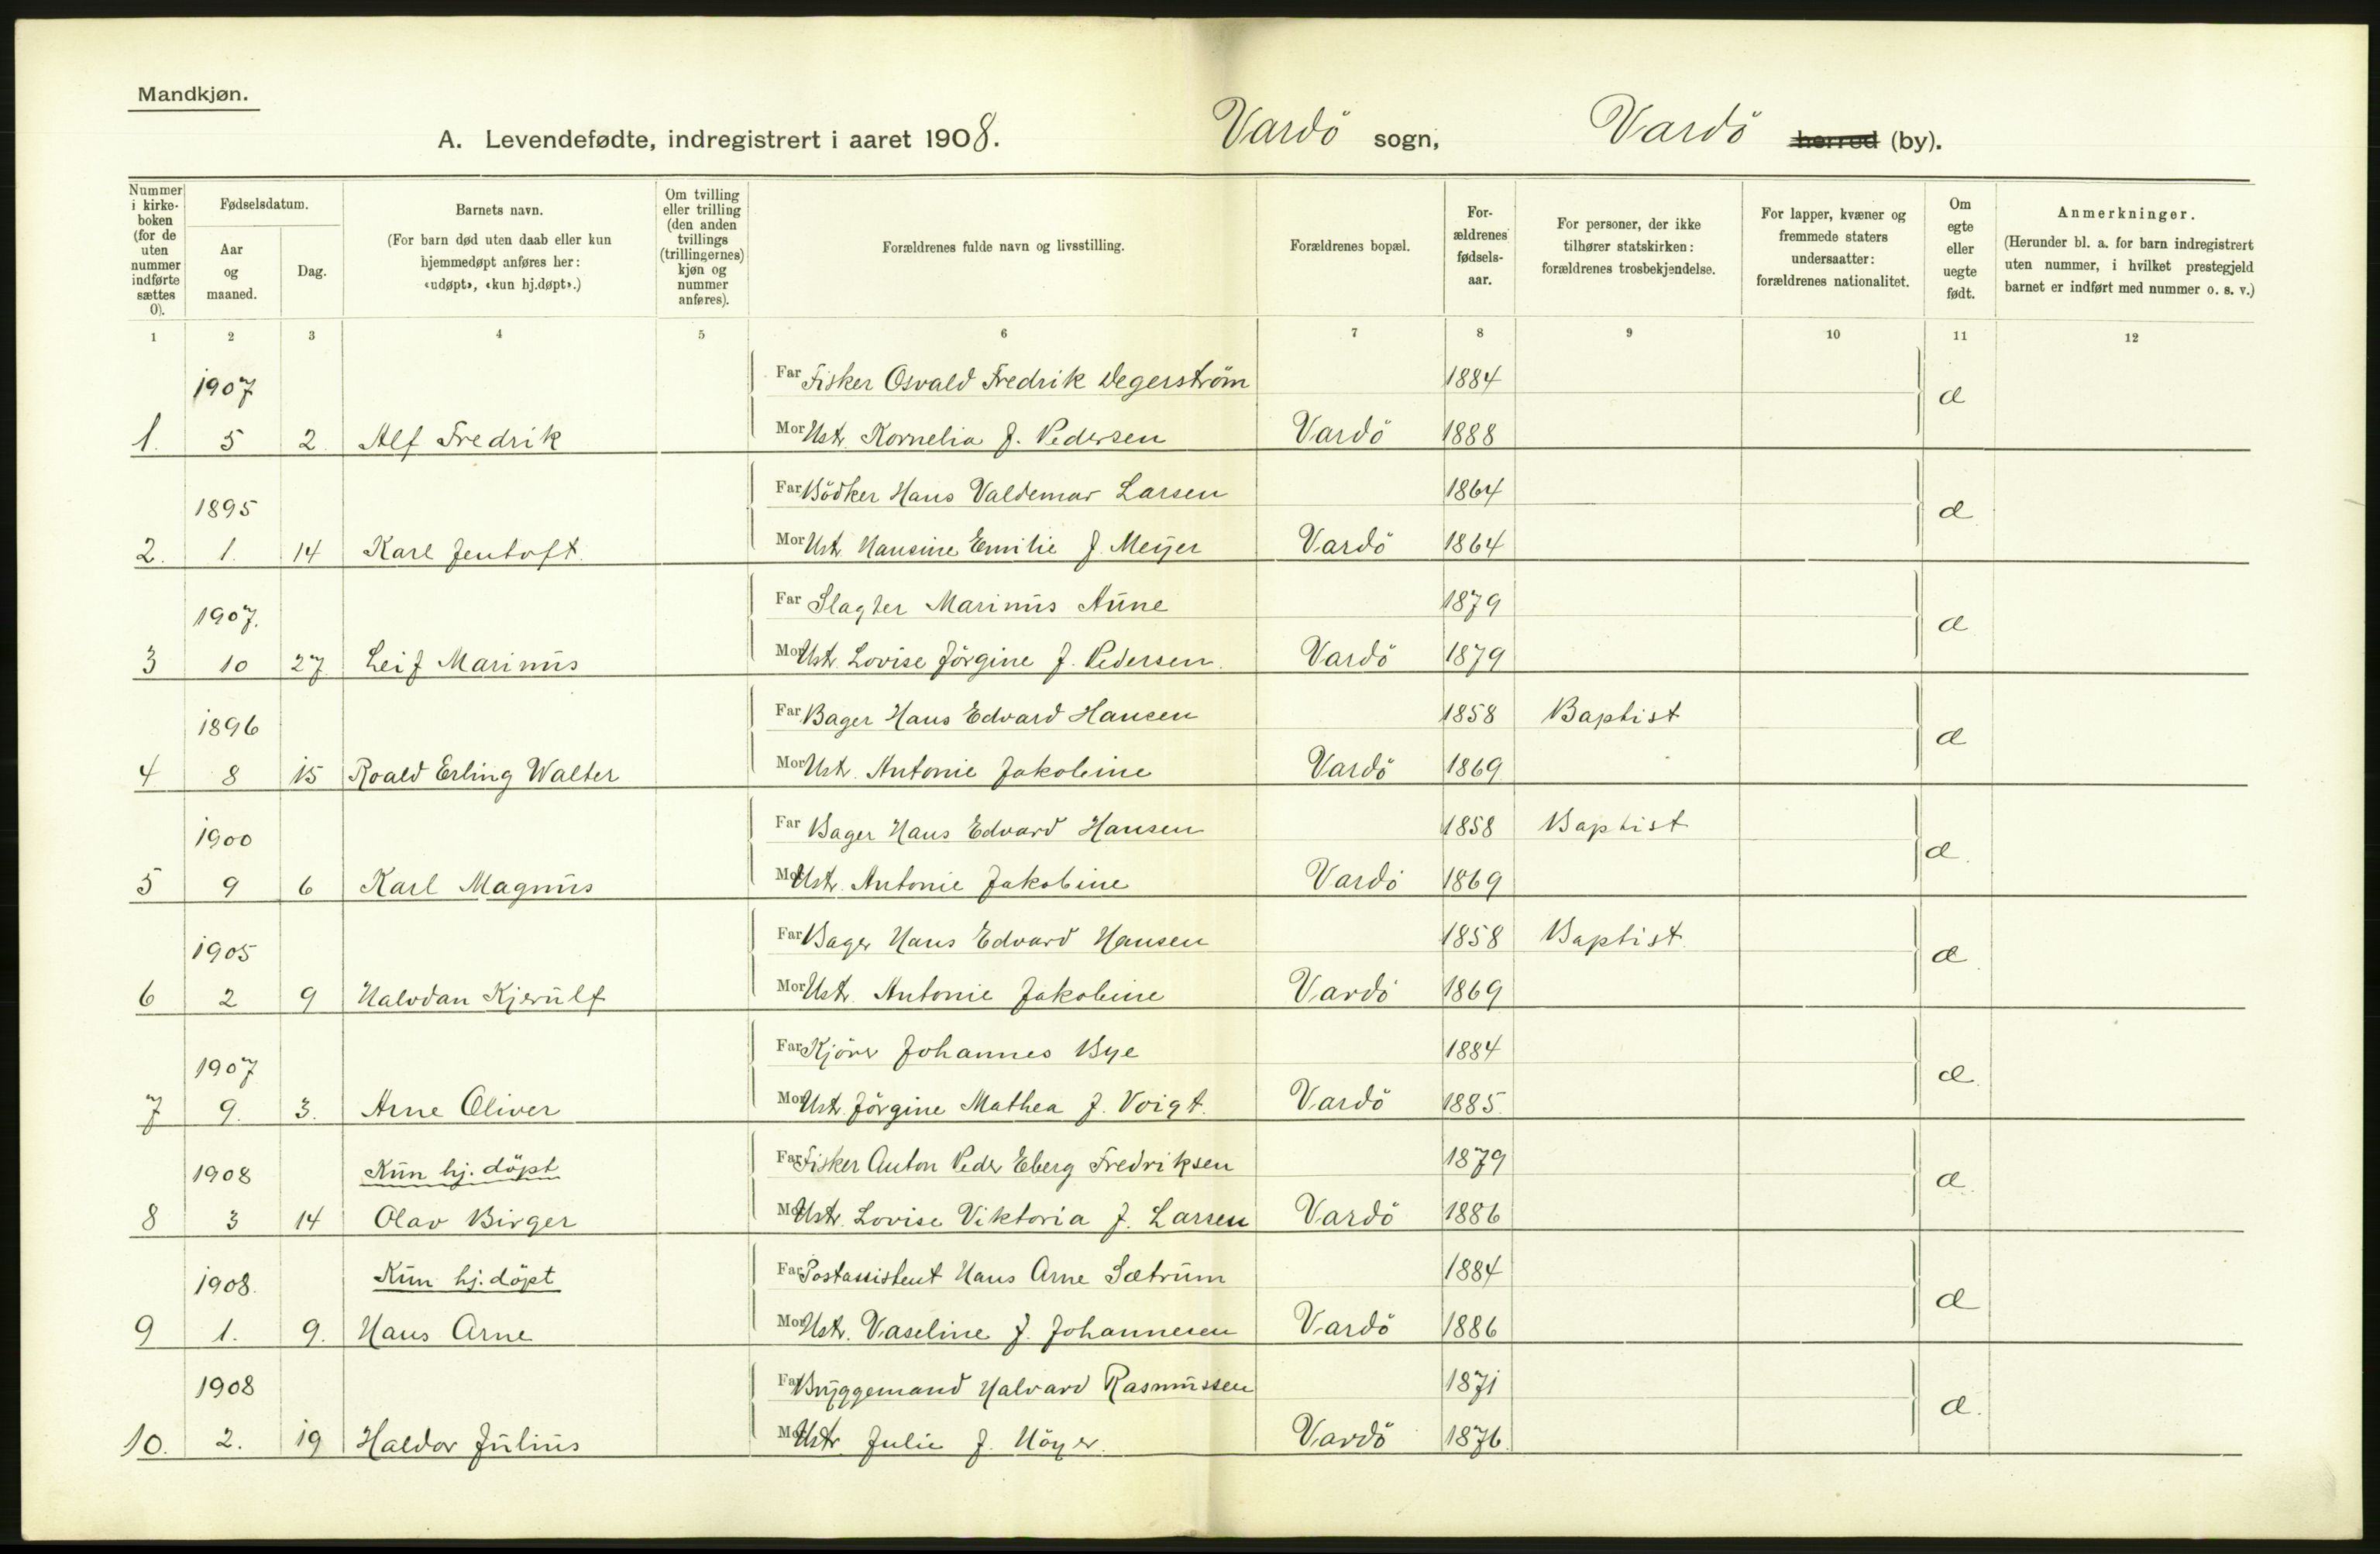 Mandkjøn.
A. Levendefødte, indregistrert i aaret 1908. Vardö sogn, Vardö herred (by).
Nummer i kirke-boken (for de uten nummer indførte sættes 0).
Fødselsdatum.
Aar og maaned.
Dag.
Barnets navn.
(For barn død uten daab eller kun hjemmedøpt anføres her: «udøpt», «kun hj.døpt».)
Om tvilling eller trilling (den anden tvillings (trillingernes) kjøn og nummer anføres).
Forældrenes fulde navn og livsstilling.
Forældrenes bopæl.
For-ældrenes fødsels-aar.
For personer, der ikke tilhører statskirken: forældrenes trosbekjendelse.
For lapper, kvæner og fremmede staters undersaatter: forældrenes nationalitet.
Om egte eller uegte født.
Anmerkninger.
(Herunder bl. a. for barn indregistrert uten nummer, i hvilket prestegjeld barnet er indført med nummer o. s. v.)
1 2 3 4 5 6 7 8 9 10 11 12
1907 Far Fisker Osvald Fredrik Degerström 1884 æ
1. 5 2. Alf Fredrik Mor Ustr. Kornelia f. Pedersen Vardö 1888
1895 Far Bödker Hans Valdemar Larsen 1864 æ
2. 1. 14 Karl Jentoft. Mor Ustr. Hansine Emilie f. Meyer Vardö 1864
1907. Far Slagter Marinus Aune 1879 æ
3 10 27. Leif Marinus Mor Ustr. Lovise Jörgine f. Pedersen. Vardö 1879
1896 Far Bager Hans Edvard Hansen 1858 Baptist æ
4 8 15 Roald Erling Walter Mor Ustr. Antonie Jakobine Vardö 1869
1900 Far Bager Hans Edvard Hansen 1858 Baptist æ.
5 9 6 Karl Magnus Mor Ustr. Antonie Jakobine Vardö 1869
1905 Far Bager Hans Edvard Hansen 1858 Baptist æ
6 2 9 Halvdan Kjerulf Mor Ustr. Antonie Jakobine Vardö 1869
1907 Far Kjörer Johannes Bye 1884 æ.
7 9. 3. Arne Oliver Mor Ustr. Jörgine Mathea f. Voigt. Vardö 1885.
1908 Kun hj. döpt Far Fisker Anton Peder Eberg Fredriksen 1879 æ.
8 3 14 Olav Birger Mor Ustr. Lovise Viktoria f. Larsen Vardö 1886
1908. Kun hj. döpt Far Postassistent Hans Arne Sætrum 1884 æ
9 1. 9. Hans Arne Mor Ustr. Vaseline f. Johannesen Vardö 1886
1908 Far Bryggemand Halvard Rasmussen 1871 æ.
10. 2. 19 Haldor Julius Mor Ustr. Julie f. Höyer. Vardö 1876.